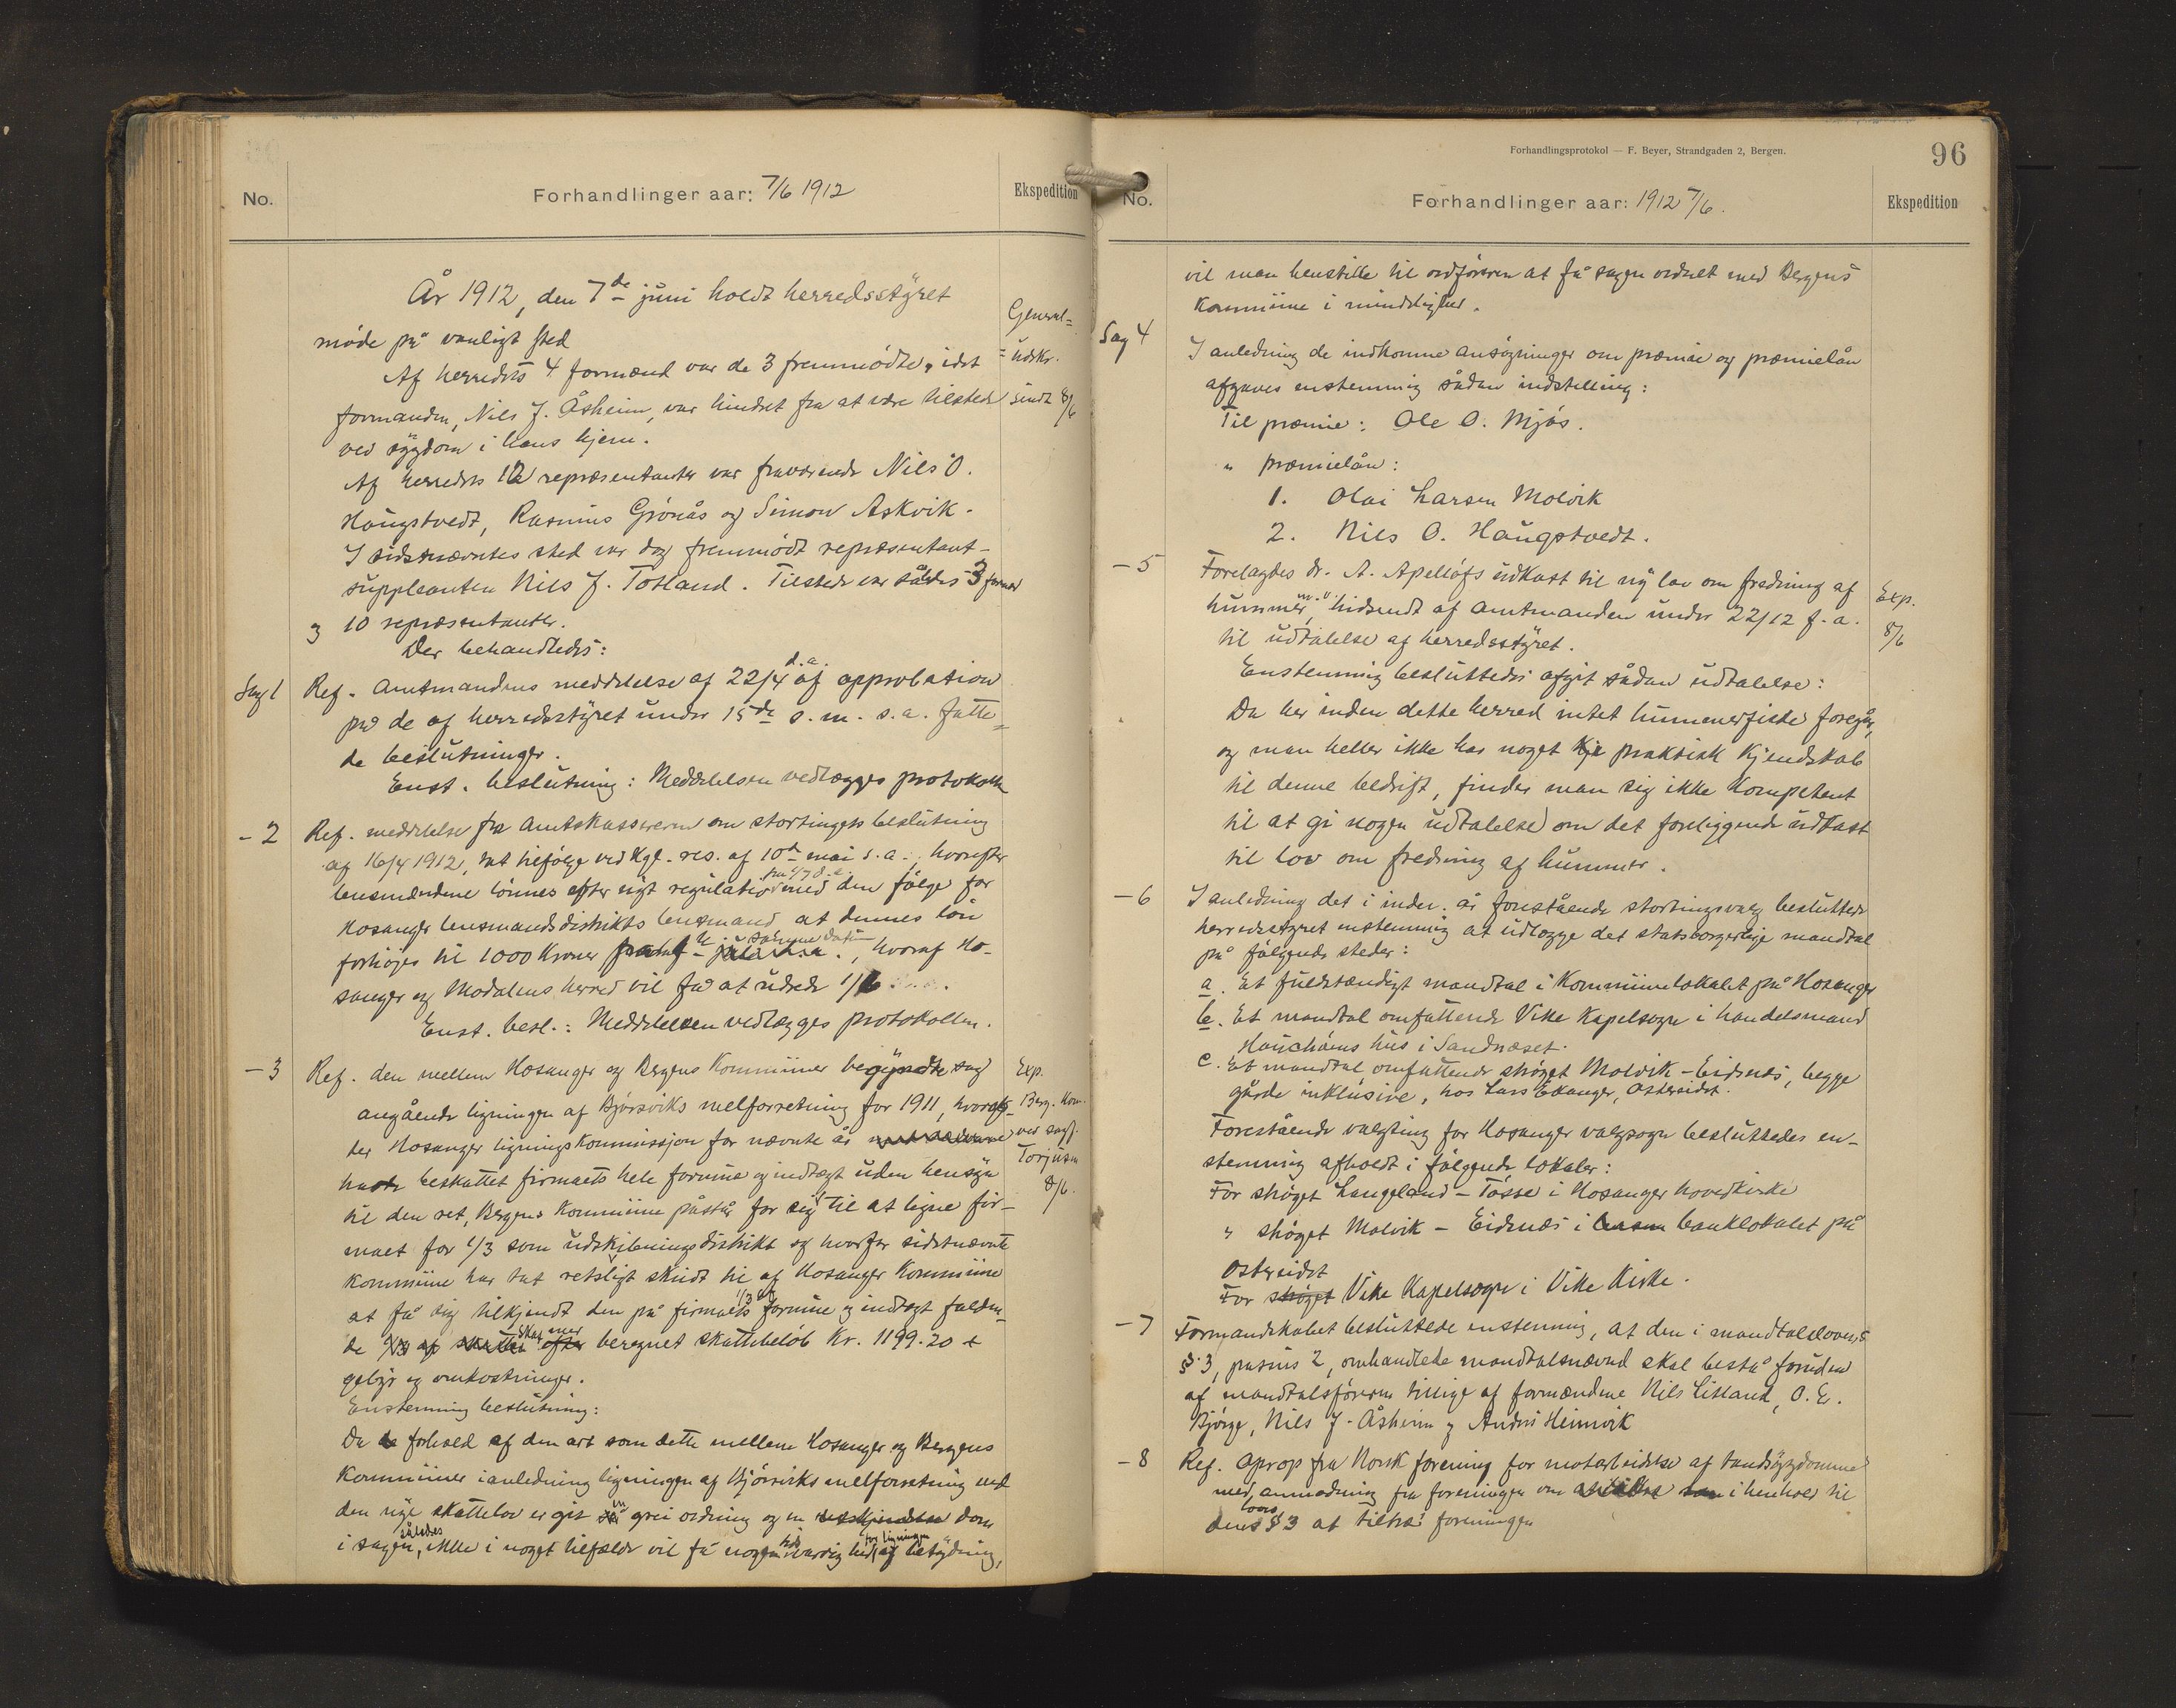 No.
Forhandlinger aar: 7/6 1912
Ekspedition
År 1912, den 7de juni holdt herredsstyret
møde på vanligt sted
General=
=udskr.
sendt 8/6
Af herredets 4 formænd var de 3 fremmødte, idet
formanden, Nils J. Åsheim, var hindret fra at være tilstede
ved sygdom i hans hjem.
Af herredets 12 repræsentanter var fraværende Nils O.
Haugstvedt, Rasmus Grønås og Simon Askvik.
I sidstnævntes sted var dog fremmødt repræsentant-
suppleanten Nils J. Totland. Tilstede var således 3 formænd
og 10 repræsentanter.
Der behandledes:
Sag 1
Ref. Amtmandens meddelelse af 22/4 d.a. af approbation
på de af herredsstyret under 15de s.m. s.a. fatte=
de beslutninger.
Enst. beslutning: Meddelelsen vedlægges protokollen
- 2
Ref. meddelelse fra Amtskassereren om stortingets beslutning
af 16/4 1912, tat tilfølge ved kgl. res. af 10de mai s.a., hvorefter
lensmændene lønnes efter nyt regulativ fra 1/7 d.a. med den følge for
Hosanger lensmandsdistrikts lensmand at dennes løn
forhøies til 1000 kroner fra samme datum, hvoraf Ho-
sanger og Modalens herred vil få at udrede 1/6
Enst. besl.: Meddelelsen vedlægges protokollen.
- 3
Ref. den mellem Hosanger og Bergens Kommuner begyndte sag
angående ligningen af Bjørsviks melforretning for 1911, hvoref-
ter Hosanger ligningskommissjon for nævnte år
havde beskattet firmaets hele formue og indtægt uden hensyn
til den ret, Bergens Kommune påstår for sig til at ligne fir-
maet for 1/3 som udskibningsdistrikt og hvorfor sidstnævnte
kommune har tat retsligt skridt til af Hosanger Kommune
at få sig tilkjendt den på firmaets 1/3 af formue og indtægt falden-
de skat beregnet skattebeløb Kr. 1199.20 +
gebyr og omkostninger.
Exp.
Berg. Kom.
ved sagf.
Torjusen
8/6.
Enstemmig beslutning:
Da forhold af den art som dette mellem Hosanger og Bergens
Kommuner i anledning ligningen af Bjørsviks melforretning ved
den nye skattelov er git en grei ordning og en dom
i sagen således, ikke i noget tilfælde vil få nogen for ligningen af betydning,
Forhandlingsprotokol — F. Beyer, Strandgaden 2, Bergen.
96
No.
Forhandlinger aar: 1912 7/6.
Ekspedition
vil man henstille til ordføreren at få sagen ordnet med Bergens
kommune i mindelighed.
Sag 4
I anledning de indkomne ansøgninger om præmie og præmielån
afgaves enstemmig sådan indstilling:
Til præmie: Ole O. Mjøs.
" præmielån:
1. Olai Larsen Molvik
2. Nils O. Haugstvedt.
- 5
Forelagdes dr. A. Apelløfs udkast til ny lov om fredning af
hummer m.v. tilsendt af Amtmanden under 22/12 f.a.
til udtalelse af herredsstyret.
Exp.
8/6
Enstemmig besluttedes afgit sådan udtalelse:
Da her inden dette herred intet hummerfiske foregår,
og man heller ikke har noget kje praktisk kjendskab
til denne bedrift, finder man sig ikke kompetent
til at gi nogen udtalelse om det foreliggende udkast
til lov om fredning af hummer.
- 6
I anledning det i indev. år forestående stortingsvalg besluttede
herredsstyret enstemmig at udlægge det statsborgerlige mandtal
på følgende steder:
a. Et fuldstændigt mandtal i Kommunelokalet på Hosanger
b. Et mandtal omfattende Vike Kapelsogn i handelsmand
Hauchams hus i Sandnæset.
c. Et mandtal omfattende strøget Molvik - Eidsnes, begge
gårde inklusive, hos Lars Ekanger, Ostereidet.
Forestående valgting for Hosanger valgsogn besluttedes en-
stemmig afholdt i følgende lokaler:
For strøget Langeland - Tøsse i Hosanger hovedkirke
" strøget Molvik - Eidsnes i banklokalet på
Ostereidet
For strøget Vike Kapelsogn i Vike Kirke.
- 7
Formandskabet besluttede enstemmig, at den i mandtalslovens
§ 3, passus 2, omhandlede mandtalsnævnd skal bestå foruden
af mandtalsføreren tillige af formændene Nils Litland, O. E.
Bjørge, Nils J. Åsheim og Anders Heimvik
- 8
Ref. Oprop fra Norsk forening for motarbeidelse af tandsygdomme
med anmodning fra foreningen om i henhold til
dens lovs § 3 at tiltræ foreningen